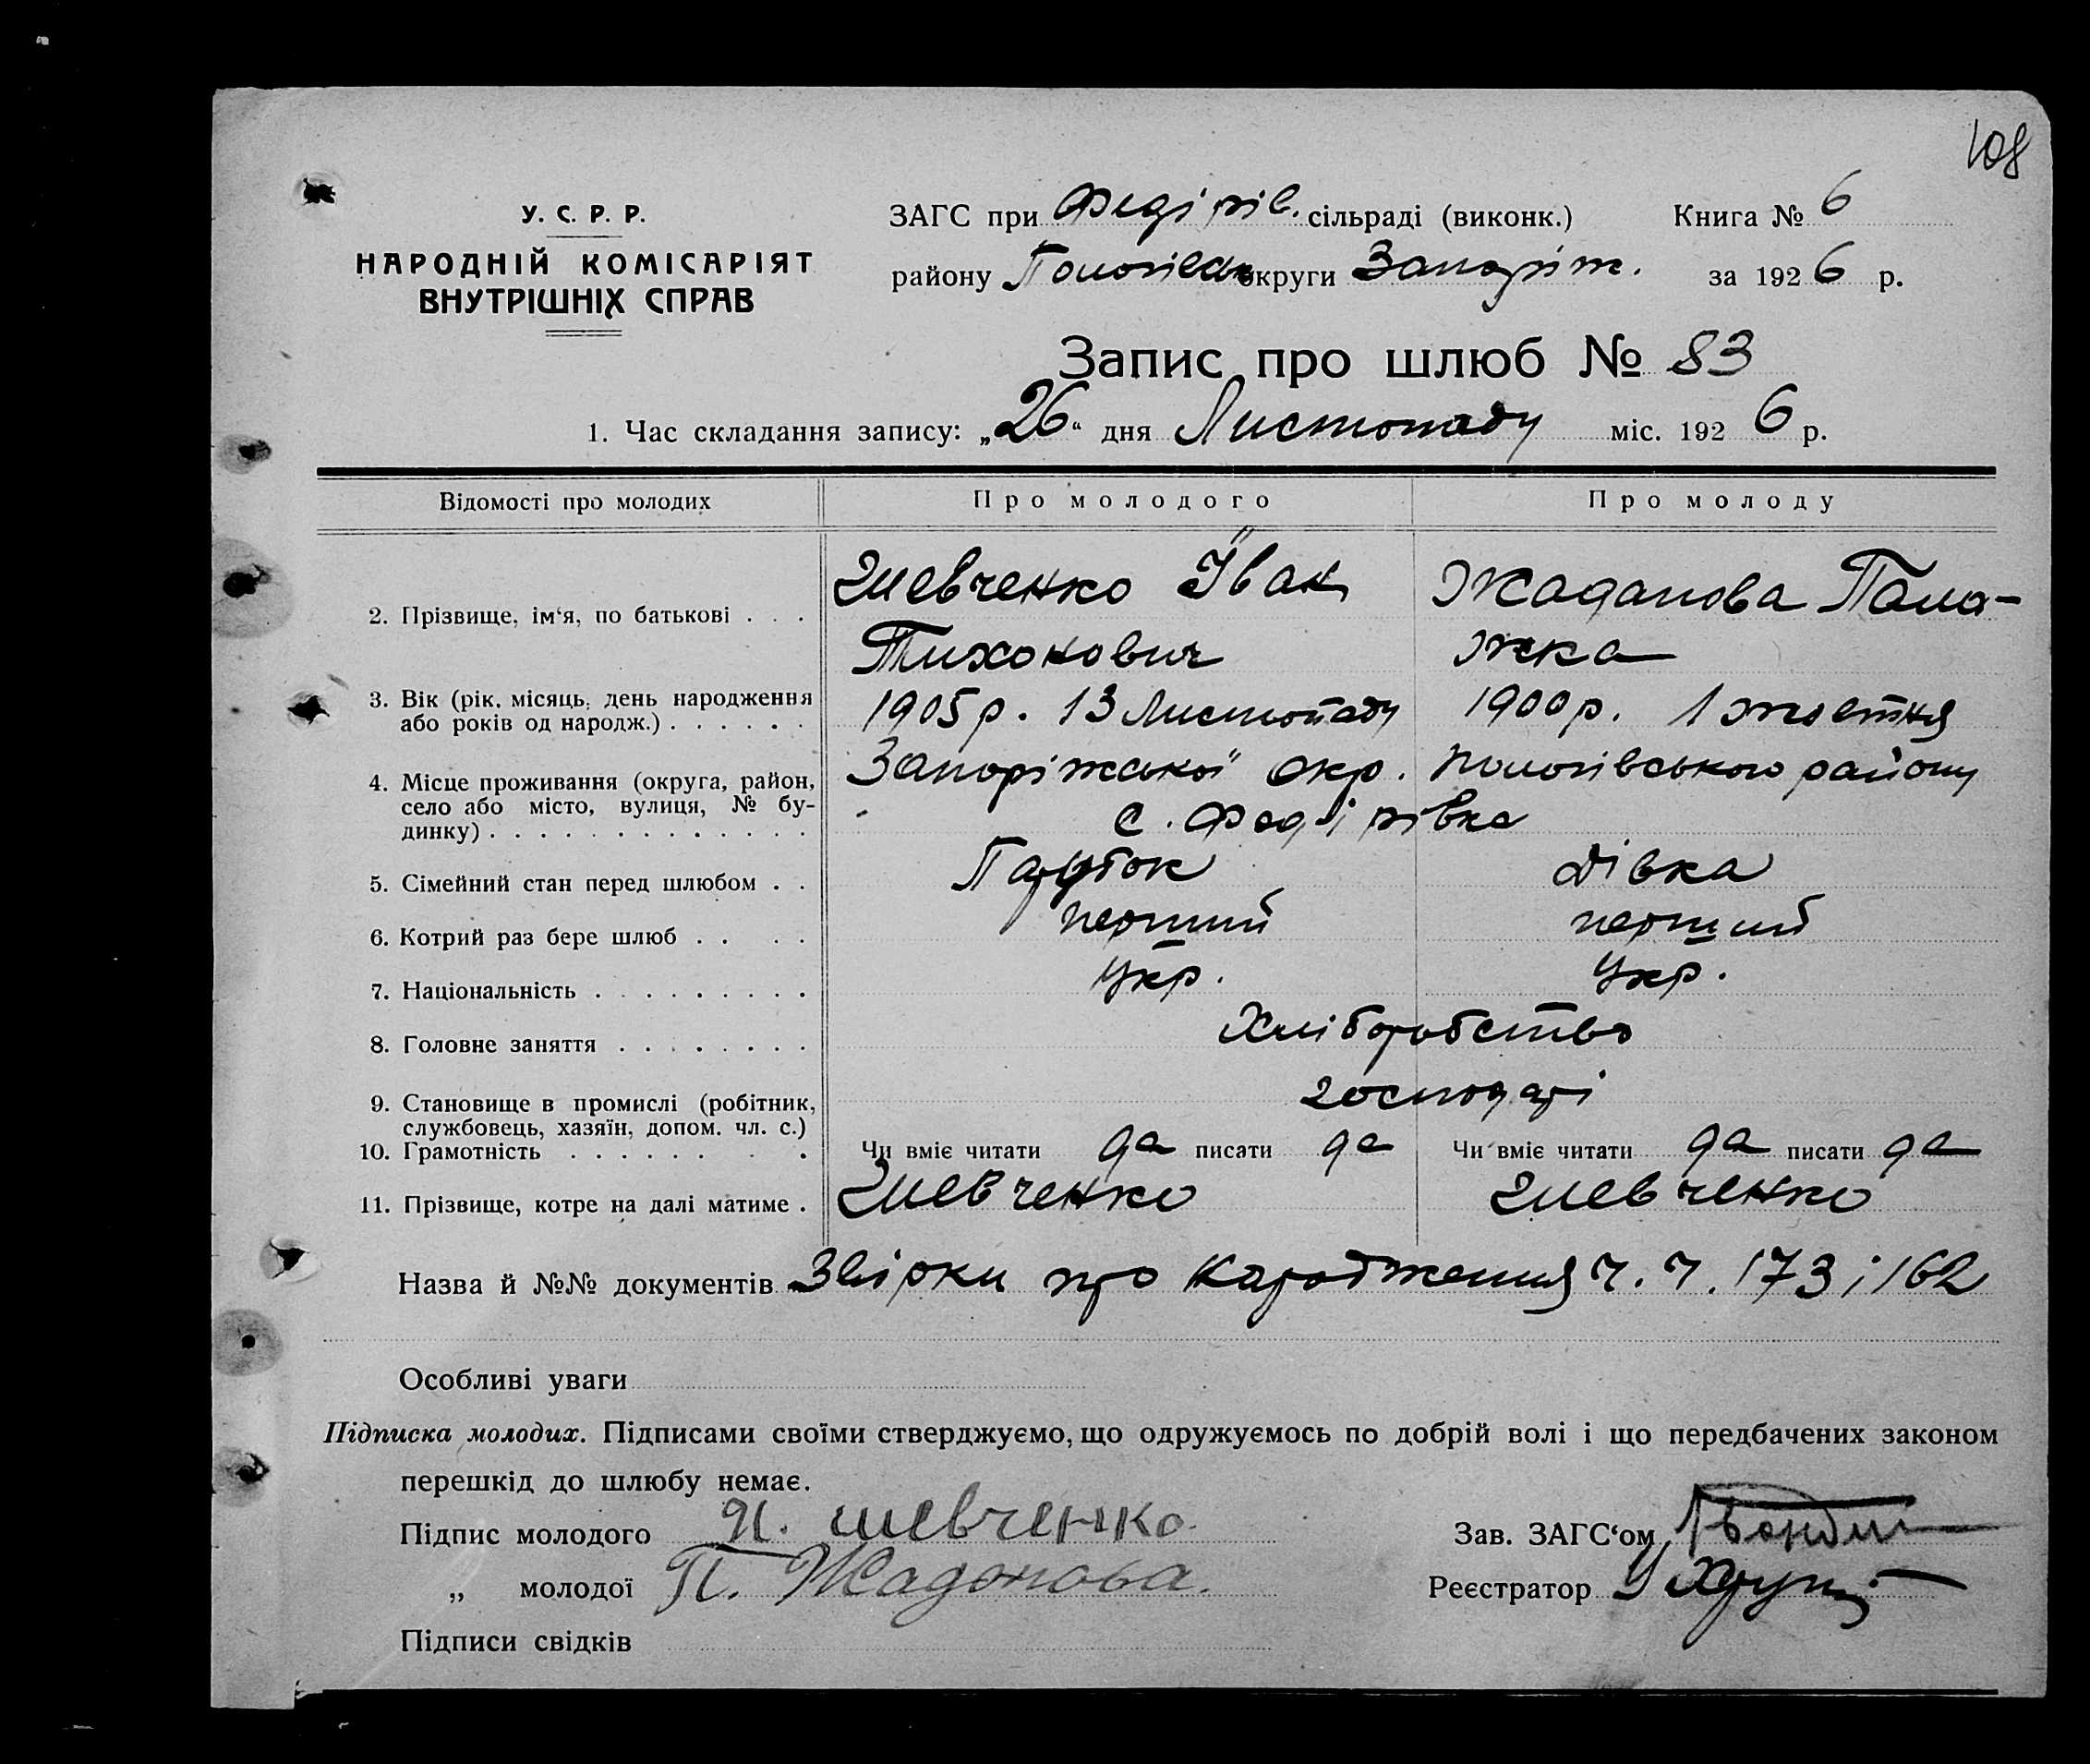 108
У. С. Р. Р.
НАРОДНІЙ КОМІСАРІЯТ
ВНУТРІШНІХ СПРАВ
ЗАГС при Федірів. сільраді (виконк.) Книга № 6
району Пологівськ округи Запоріж. за 1926 р.
Запис про шлюб № 83
1. Час складання запису: „26“ дня Листопаду міс. 1926 р.
Відомості про молодих Про молодого Про молоду
2. Прізвище, ім‘я, по батькові . . . Шевченко Іван Жаданова Пала-
Тихонович жка
3. Вік (рік, місяць, день народження 1905 р. 13 Листопаду 1900 р. 1 жовтня
або років од народж.) . . . . . .
4. Місце проживання (округа, район, Запоріжської окр. Пологівського району
село або місто, вулиця, № бу- с. Федірівка
динку) . . . . . . . . . . . . .
5. Сімейний стан перед шлюбом . . Парубок дівка
6. Котрий раз бере шлюб . . . . перший перший
7. Національність . . . . . . . . . Укр. Укр.
8. Головне заняття . . . . . . . . Хліборобство
9. Становище в промислі (робітник, господарі
службовець, хазяїн, допом. чл. с.)
10. Грамотність . . . . . . . . Чи вміє читати да писати да Чи вміє читати да писати да
11. Прізвище, котре на далі матиме . Шевченко Шевченко
Назва й №№ документів Звірки про народження ч. ч. 173 і 162
Особливі уваги
Підписка молодих. Підписами своїми стверджуємо, що одружуємось по добрій волі і що передбачених законом
перешкід до шлюбу немає.
Підпис молодого И. Шевченко. Зав. ЗАГС‘ом
„ молодої П. Жадонова. Реєстратор
Підписи свідків